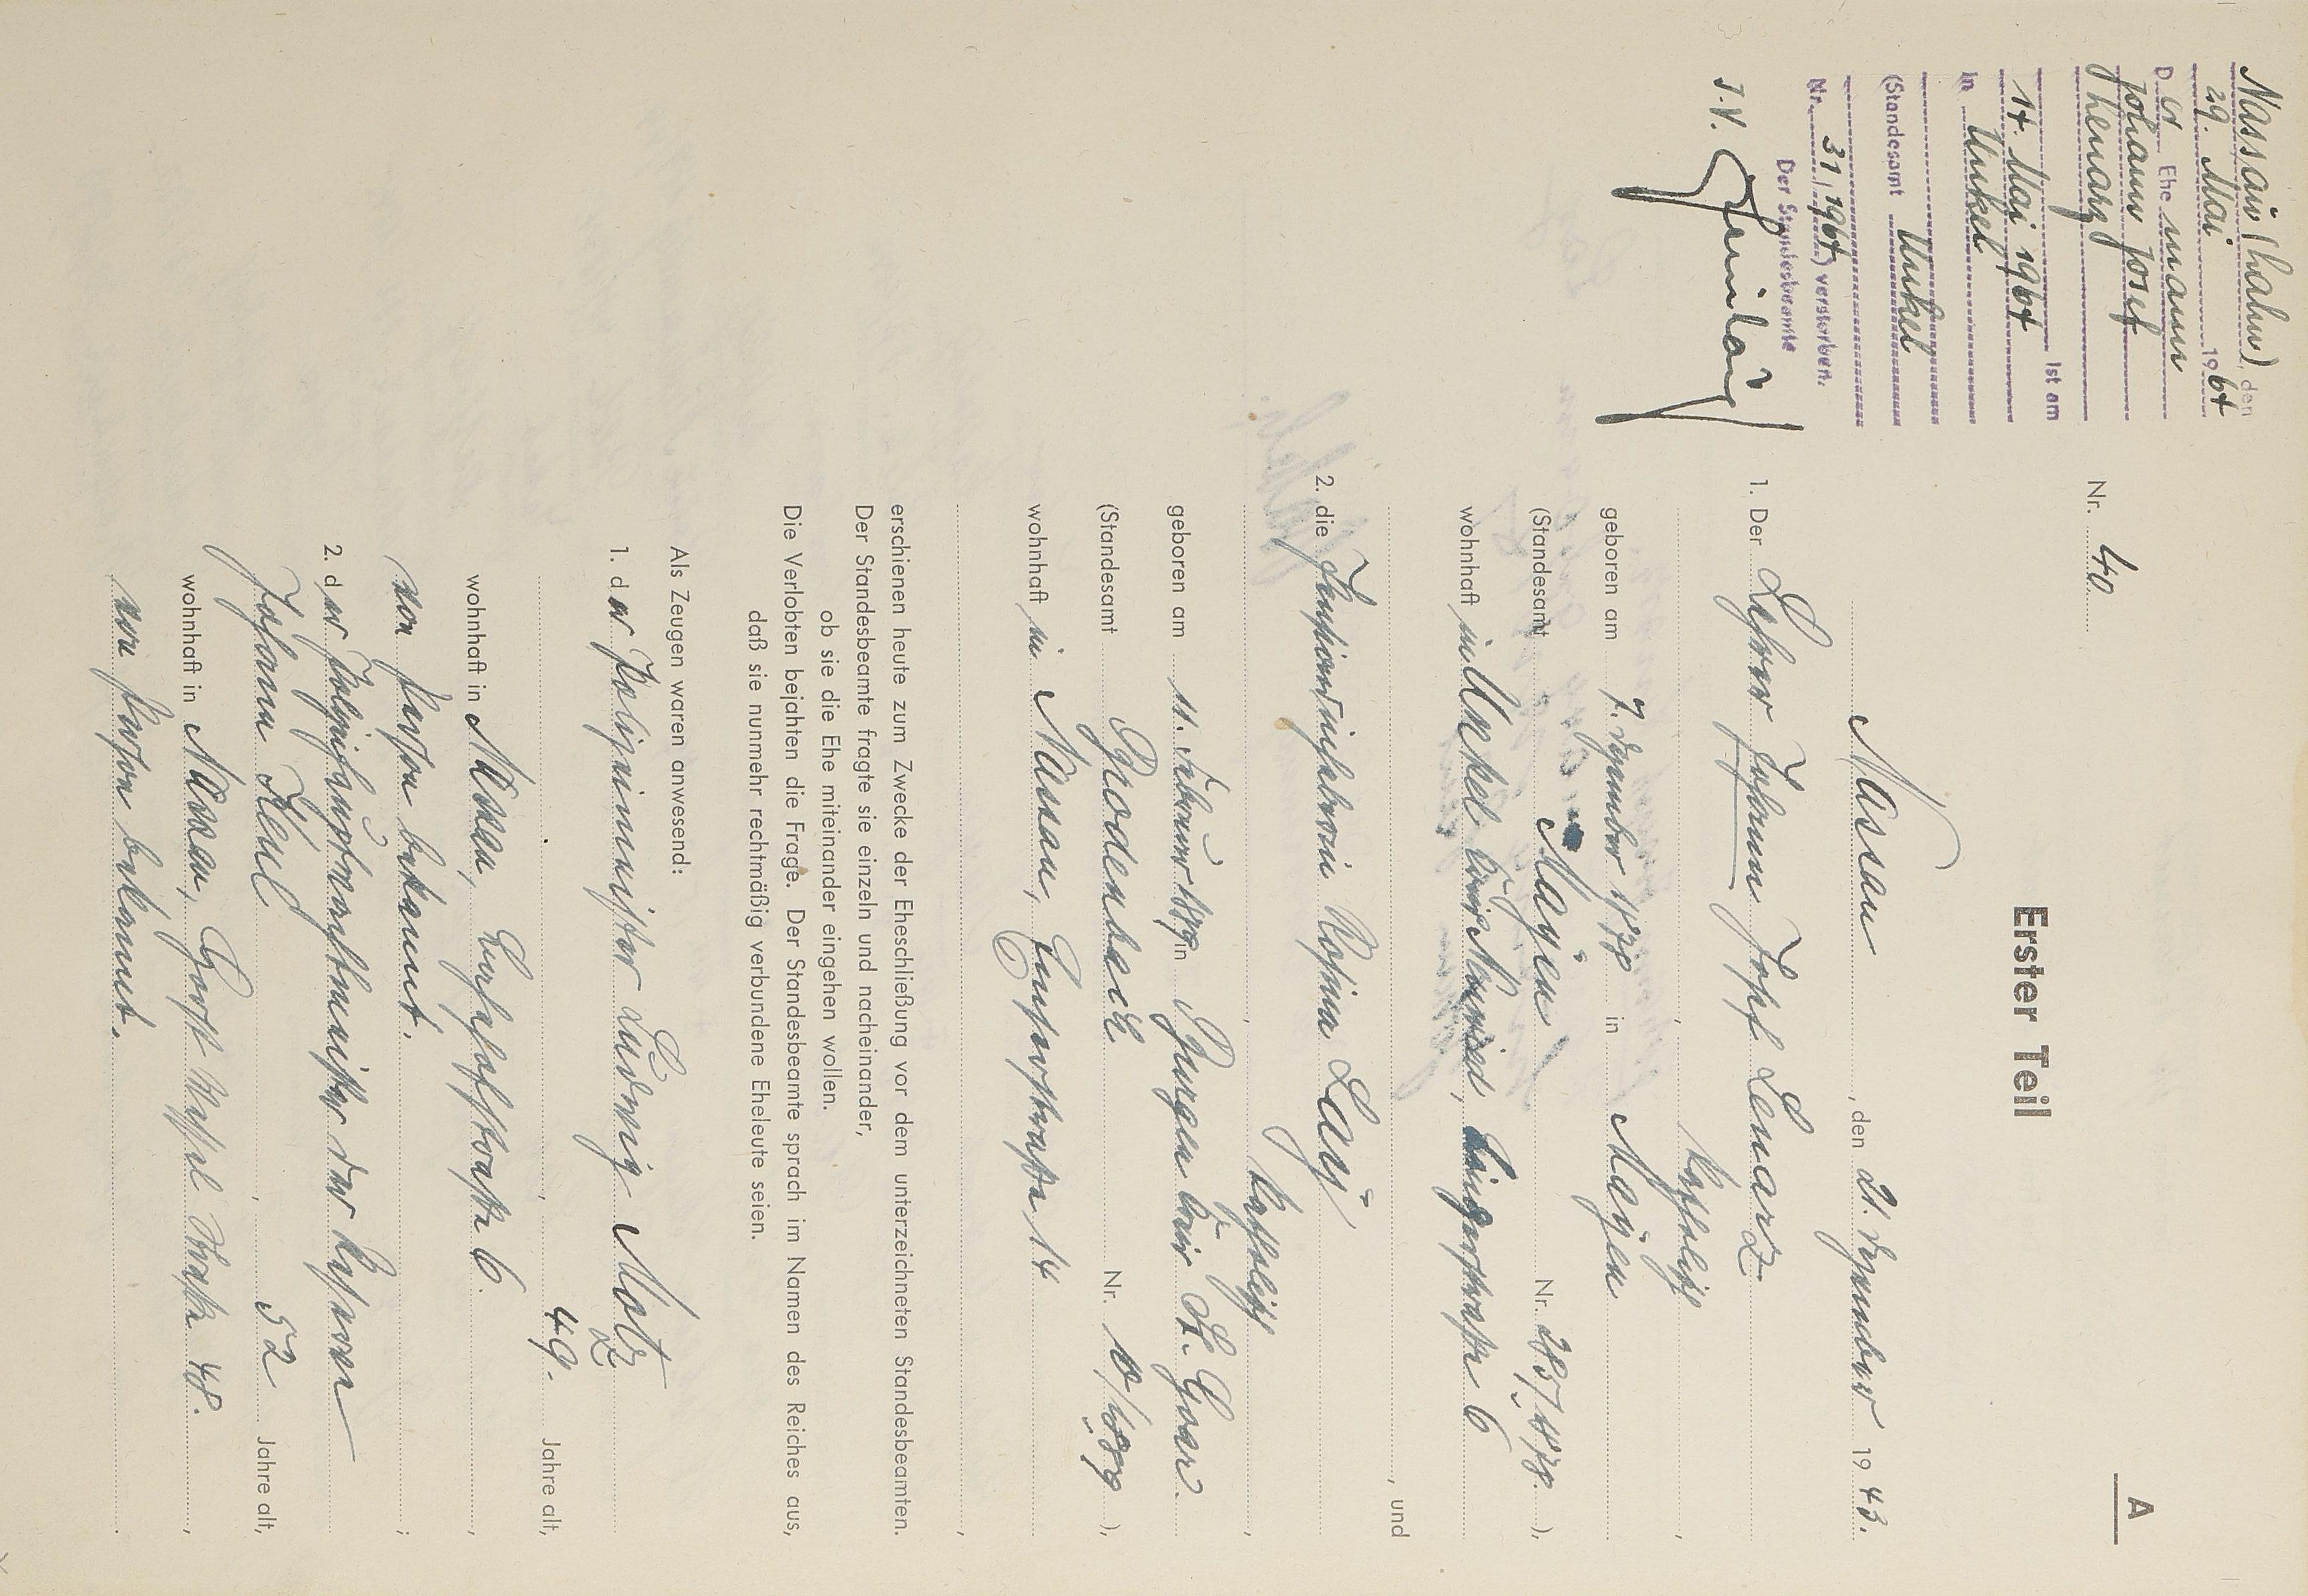 A
Erster Teil
Nr. 40
Nassau, den 21. Dezember 1943.
1. Der Lehrer Johann Josef Lenarz
, katholisch,
geboren am 7. Dezember 1878 in Mayen
(Standesamt Mayen Nr. 285/1878.),
wohnhaft in Unkel, Kreis Neuwied, 6
, und
2. die Rosina Lay
, katholisch,
geboren am 11. Februar 1889 in Kreis St. Goar.
(Standesamt Brodenbach Nr. 10/1889),
wohnhaft in Nassau, Emserstraße 14
,
erschienen heute zum Zwecke der Eheschließung vor dem unterzeichneten Standesbeamten.
Der Standesbeamte fragte sie einzeln und nacheinander,
ob sie die Ehe miteinander eingehen wollen.
Die Verlobten bejahten die Frage. Der Standesbeamte sprach im Namen des Reiches aus,
daß sie nunmehr rechtmäßig verbundene Eheleute seien.
Als Zeugen waren anwesend:
1. der Polizeimeister Ludwig Motz
, 49. Jahre alt,
wohnhaft in Nassau, 6.,
von Person bekannt.;
2. der Polizeihauptwachtmeister der Reserve
Johann Keul, 52 Jahre alt,
wohnhaft in Nassau, Horst Wessel Straße 48.,
von Person bekannt.
Nassau (Lahn), den
29. Mai 1964
Der Ehemann
Johann Josef
Lenarz
ist am
14. Mai 1964
in Unkel
(Standesamt Unkel
Nr. 31/1964) verstorben.
Der Standesbeamte
J.V.